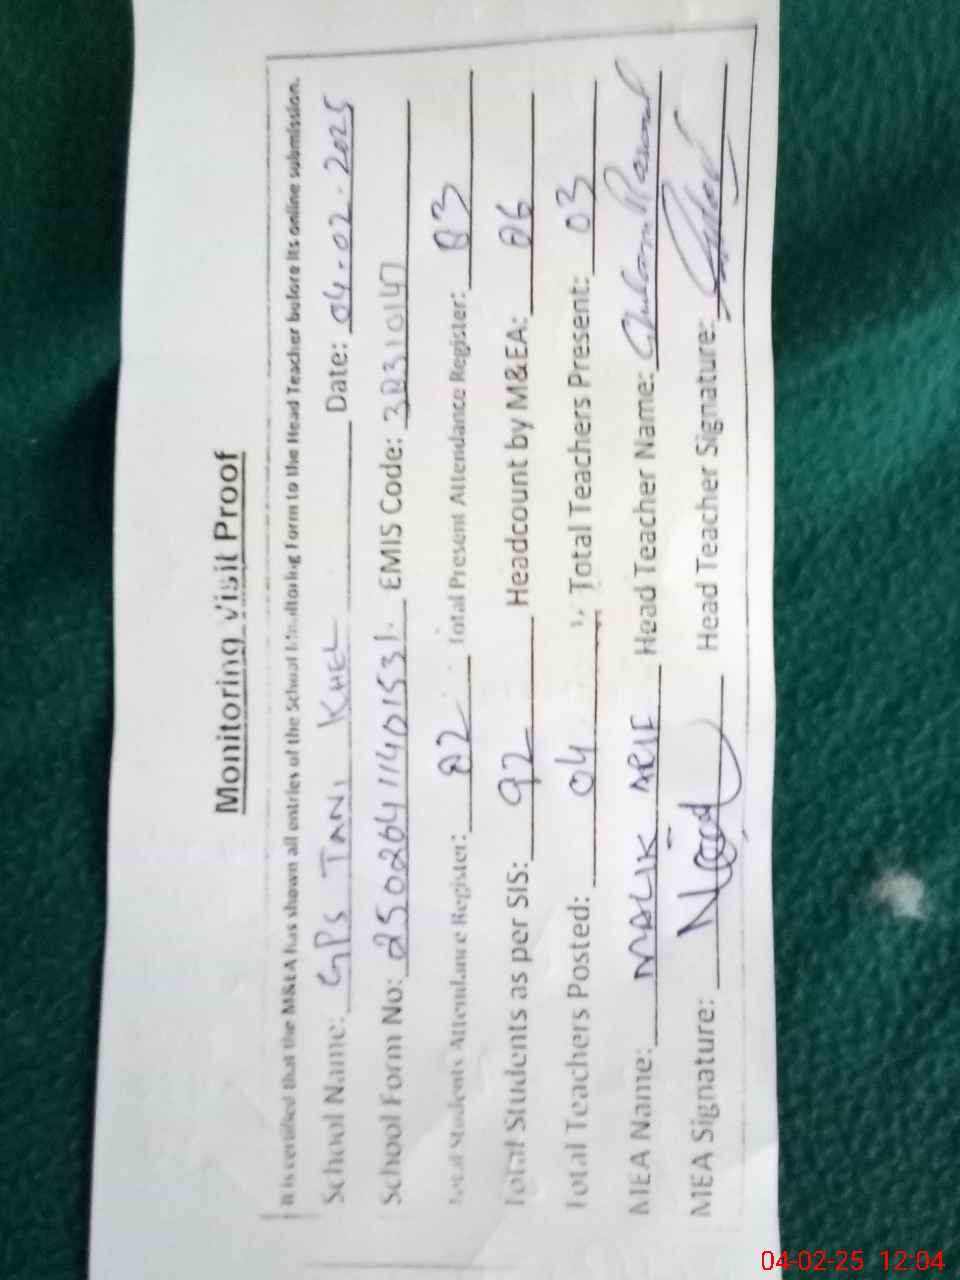 Monitoring Visit Proof
It is certified that the M&EA has shown all entries of the School Monitoring Form to the Head Teacher before its online submission.
School Name: GPS TANI KHEL Date: 04-02-2025
School Form No: 25020411401531. EMIS Code:
Total Students Attendance Register: Total Present Attendance Register:
Total Students as per SIS: 92 Headcount by M&EA:
Total Teachers Posted: 04 Total Teachers Present: 03
MEA Name: MALIK ARIF Head Teacher Name: Ghulam Rasool
MEA Signature: Head Teacher Signature:
04-02-25 12:04